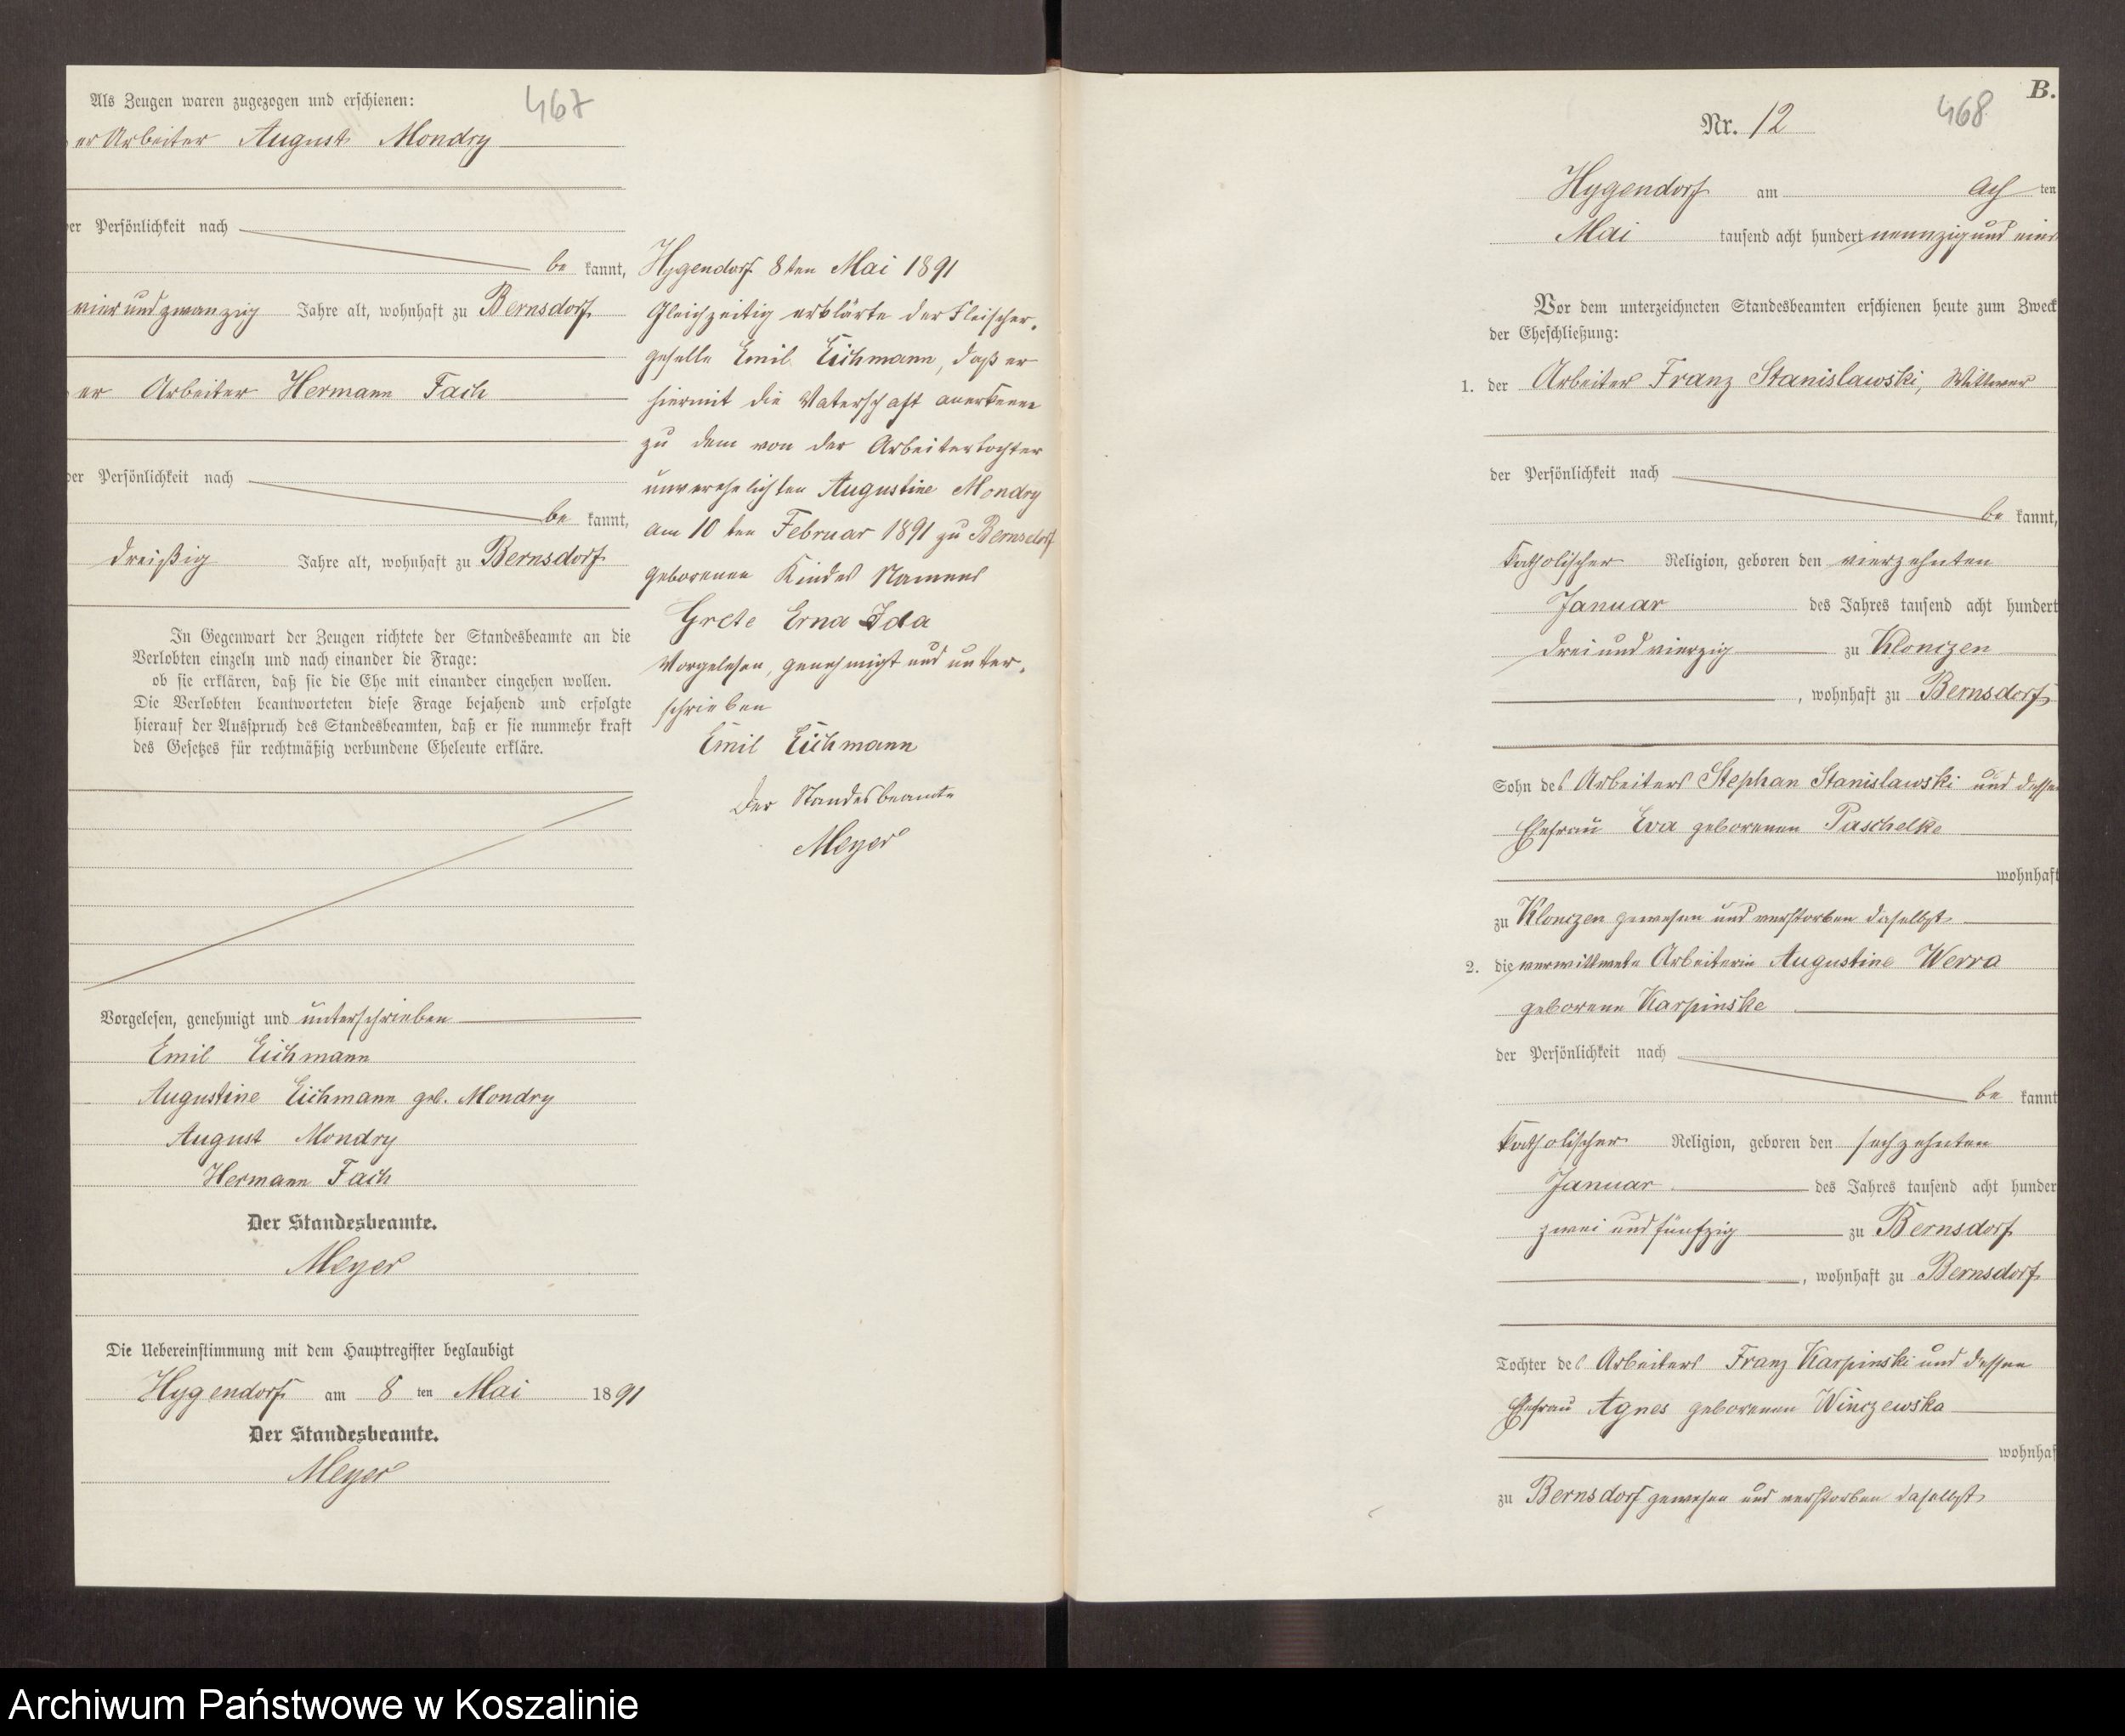 467
Als Zeugen waren zugezogen und erschienen:
er Arbeiter August Mondry
er Persönlichkeit nach
be kannt,
vier und zwanzig Jahre alt, wohnhaft zu Bernsdorf
er Arbeiter Hermann Fach
er Persönlichkeit nach
be kannt,
dreißig Jahre alt, wohnhaft zu Bernsdorf
In Gegenwart der Zeugen richtete der Standesbeamte an die
Verlobten einzeln und nach einander die Frage:
ob sie erklären, daß sie die Ehe mit einander eingehen wollen.
Die Verlobten beantworteten diese Frage bejahend und erfolgte
hierauf der Ausspruch des Standesbeamten, daß er sie nunmehr kraft
des Gesetzes für rechtmäßig verbundene Eheleute erkläre.
Vorgelesen, genehmigt und unterschrieben
Emil Eichmann
Augustine Eichmann geb. Mondry
August Mondry
Hermann Fach
Der Standesbeamte.
Meyer
Die Uebereinstimmung mit dem Hauptregister beglaubigt
Hygendorf am 8 ten Mai 1891
Der Standesbeamte.
Meyer
Hygendorf 8ten Mai 1891
Gleichzeitig erklärte der Fleischer-
geselle Emil Eichmann, daß er
hiermit die Vaterschaft anerkenne
zu dem von der Arbeitertochter
unverehelichten Augustine Mondry
am 10 ten Februar 1891 zu Bernsdorf
geborenen Kindes Namens
Grete Erna Ida
Vorgelesen, genehmigt und unter-
schrieben
Emil Eichmann
Der Standesbeamte
Meyer
B.
468
Nr. 12
Hygendorf am ach ten
Mai tausend acht hundert neunzig und eins
Vor dem unterzeichneten Standesbeamten erschienen heute zum Zweck
der Eheschließung:
1. der Arbeiter Franz Stanislawski, Wittwer
der Persönlichkeit nach
be kannt,
katholischer Religion, geboren den vierzehnten
Januar des Jahres tausend acht hundert
drei und vierzig zu Klonczen
, wohnhaft zu Bernsdorf
Sohn des Arbeiters Stephan Stanislawski und dessen
Ehefrau Eva geborenen Paschelke
wohnhaft
zu Klonczen gewesen und verstorben daselbst
2. die verwittwete Arbeiterin Augustine Werra
geborene Karpinske
der Persönlichkeit nach
be kannt
katholischer Religion, geboren den sechzehnten
Januar des Jahres tausend acht hunder
zwei und fünfzig zu Bernsdorf
, wohnhaft zu Bernsdorf
Tochter des Arbeiters Franz Karpinski und dessen
Ehefrau Agnes geborenen Winczewska
wohnhaf
zu Bernsdorf gewesen und verstorben daselbst
Archiwum Państwowe w Koszalinie